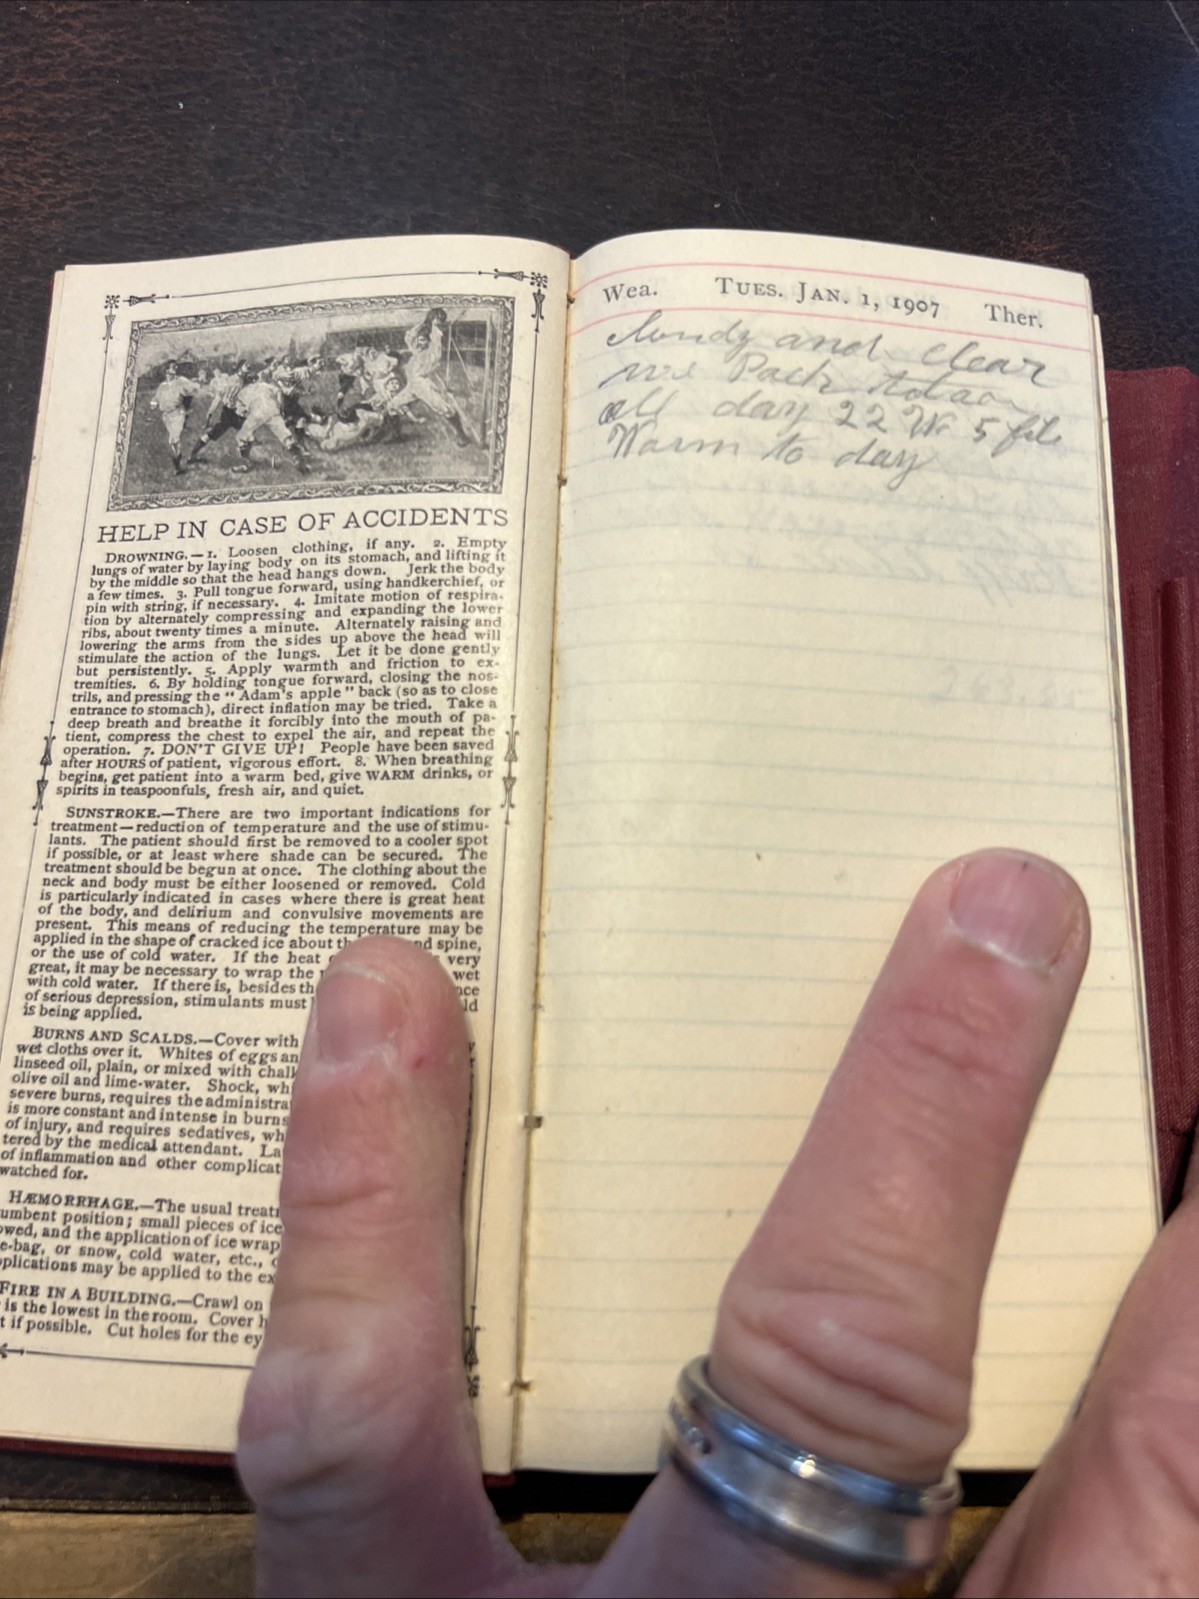 HELP IN CASE OF ACCIDENTS
DROWNING.—1. Loosen clothing, if any. 2. Empty
lungs of water by laying body on its stomach, and lifting it
by the middle so that the head hangs down. Jerk the body
a few times. 3. Pull tongue forward, using handkerchief, or
pin with string, if necessary. 4. Imitate motion of respira-
tion by alternately compressing and expanding the lower
ribs, about twenty times a minute. Alternately raising and
lowering the arms from the sides up above the head will
stimulate the action of the lungs. Let it be done gently
but persistently. 5. Apply warmth and friction to ex-
tremities. 6. By holding tongue forward, closing the nos-
trils, and pressing the "Adam's apple" back (so as to close
entrance to stomach), direct inflation may be tried. Take a
deep breath and breathe it forcibly into the mouth of pa-
tient, compress the chest to expel the air, and repeat the
operation. 7. DON'T GIVE UP! People have been saved
after HOURS of patient, vigorous effort. 8. When breathing
begins, get patient into a warm bed, give WARM drinks, or
spirits in teaspoonfuls, fresh air, and quiet.
SUNSTROKE.—There are two important indications for
treatment—reduction of temperature and the use of stimu-
lants. The patient should first be removed to a cooler spot
if possible, or at least where shade can be secured. The
treatment should be begun at once. The clothing about the
neck and body must be either loosened or removed. Cold
is particularly indicated in cases where there is great heat
of the body, and delirium and convulsive movements are
present. This means of reducing the temperature may be
applied in the shape of cracked ice about th nd spine,
or the use of cold water. If the heat very
great, it may be necessary to wrap the wet
with cold water. If there is, besides th nce
of serious depression, stimulants must ld
is being applied.
BURNS AND SCALDS.—Cover with
wet cloths over it. Whites of eggs an
linseed oil, plain, or mixed with chalk
olive oil and lime-water. Shock, whi
severe burns, requires the administra
is more constant and intense in burns
of injury, and requires sedatives, wh
tered by the medical attendant. La
of inflammation and other complicat
watched for.
HÆMORRHAGE.—The usual treatr
umbent position; small pieces of ice
owed, and the application of ice wrap
e-bag, or snow, cold water, etc.,
pplications may be applied to the ex
FIRE IN A BUILDING.—Crawl on
is the lowest in the room. Cover h
t if possible. Cut holes for the ey
Wea. TUES. JAN. 1, 1907 Ther.
Cloudy and Clear
we Pack
all day 22 5
Warm to day